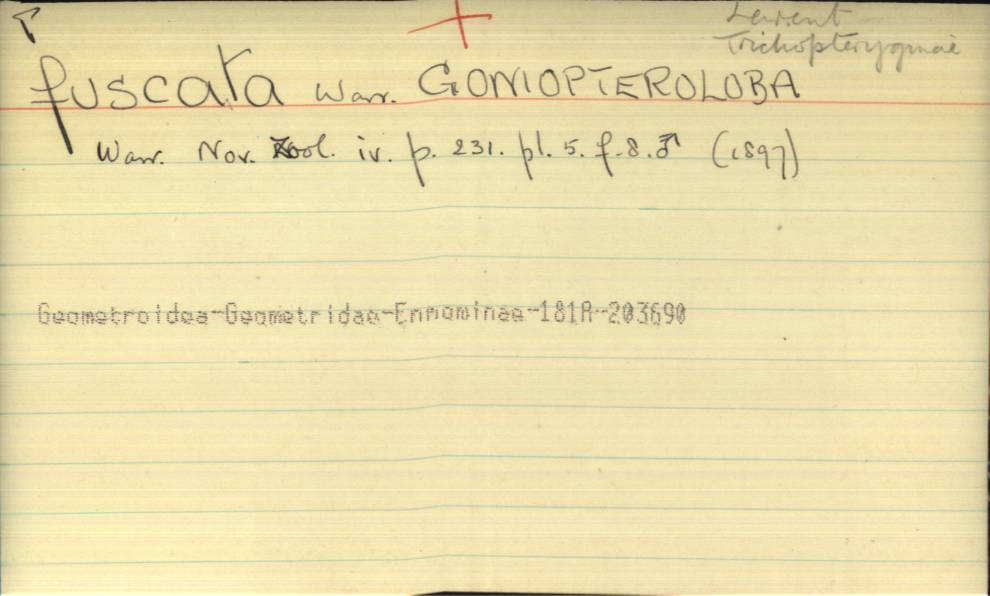 Larent
Trichopteryginae
fuscata Warr. GONIOPTEROLOBA
Warr. Nov. Zool. iv. p. 231. pl. 5. f. 8. ♂ (1897)
Geometroidea-Geometridae-Ennominae-181A-203690